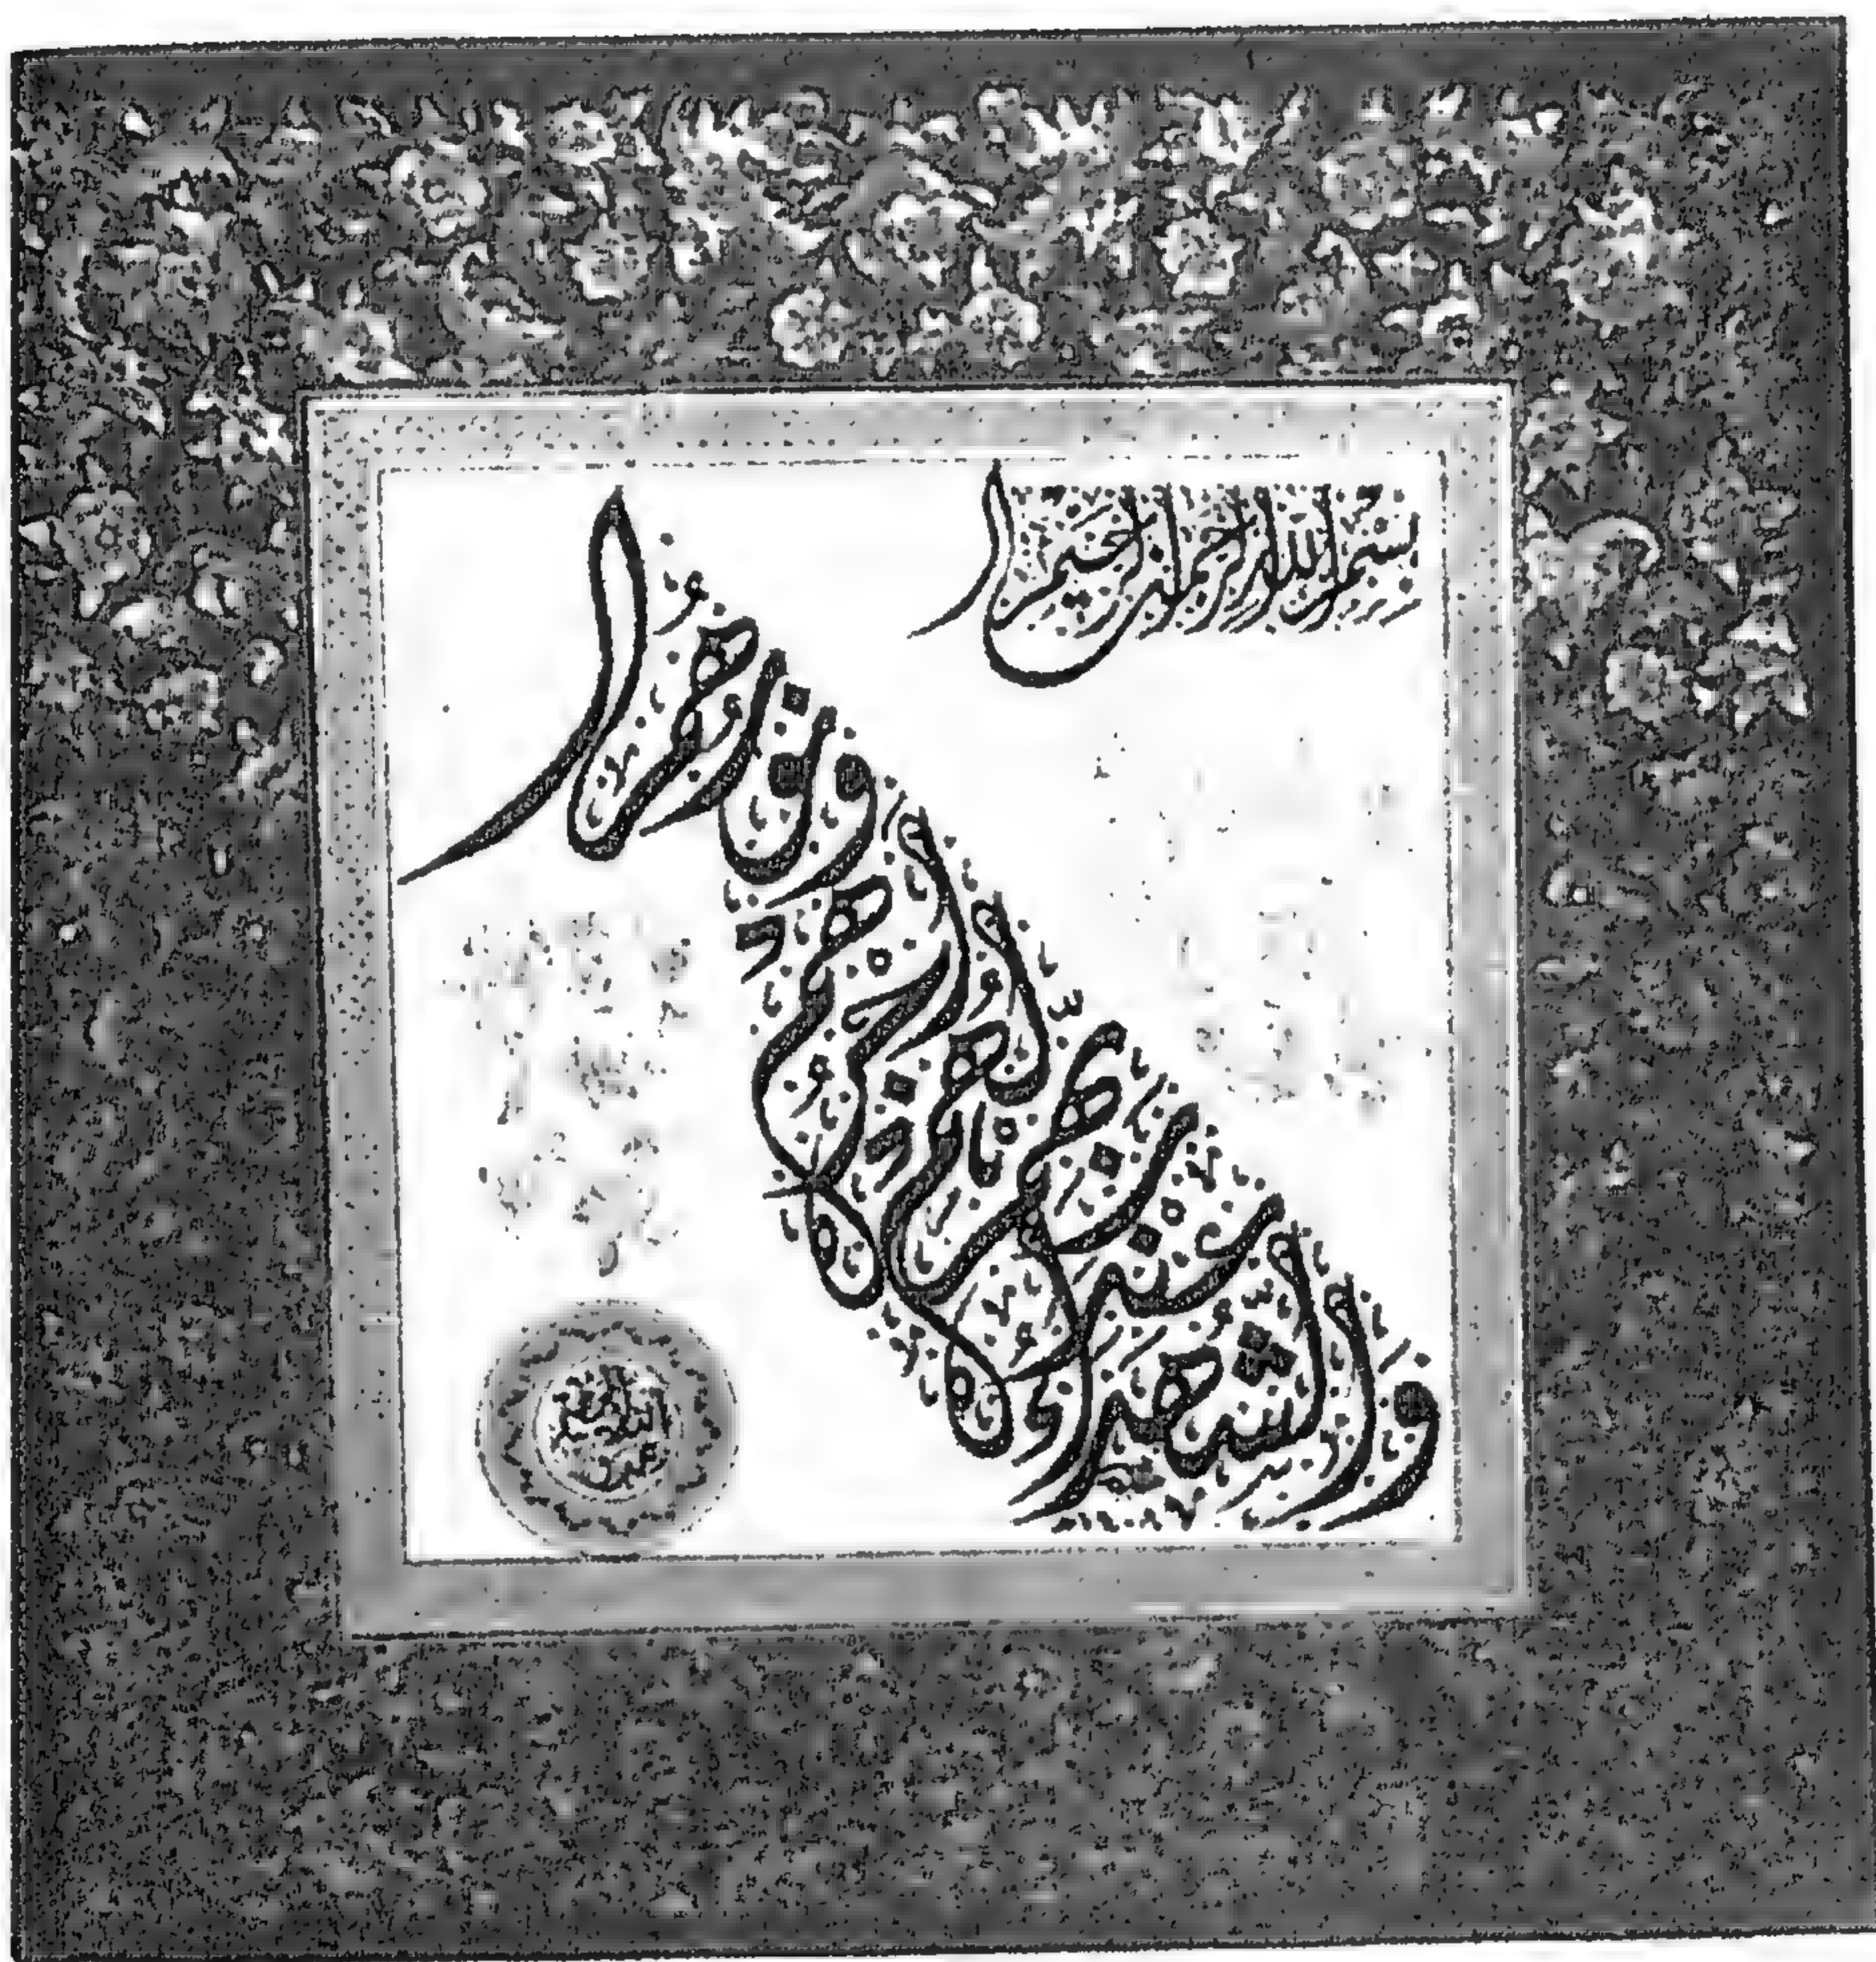 بسم الله الرحمن الرحيم
والشهداء عند ربهم لهم أجرهم ونورهم